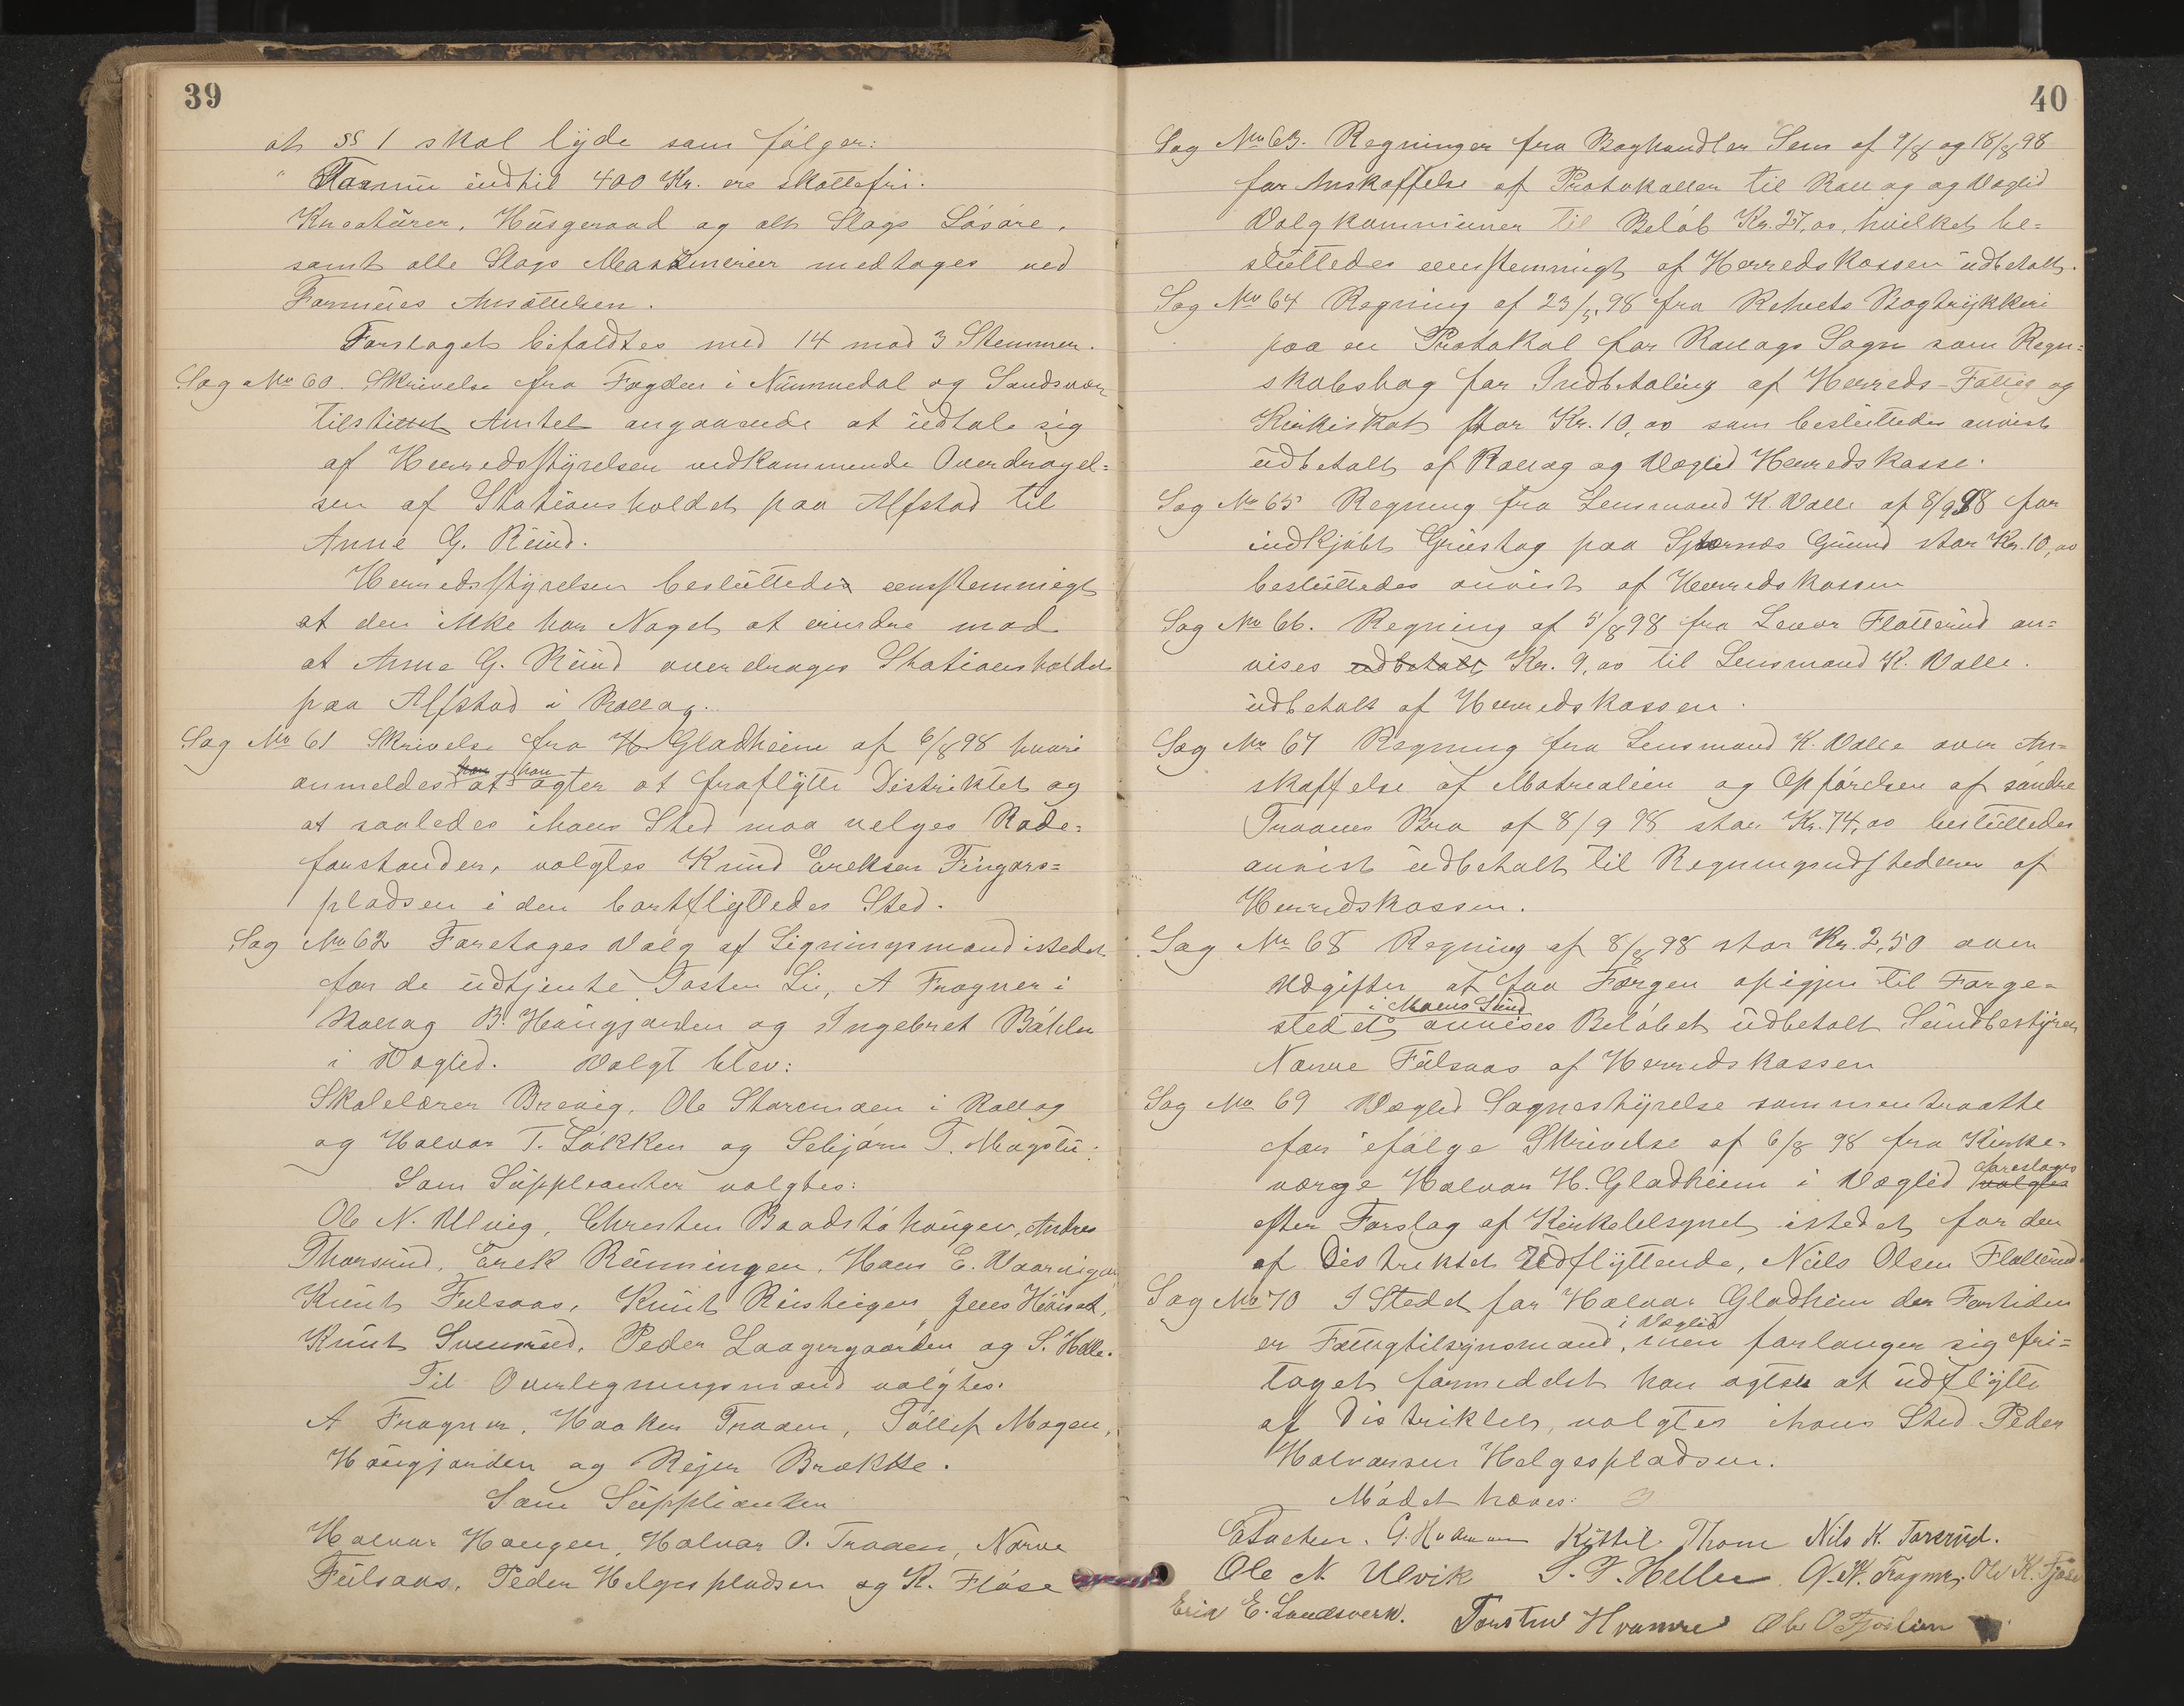 39
at §§ 1 skal lyde som følger:
" Formue indtil 400 Kr. ere skattefri.
Kreaturer, Husgeraad og alt Slags Løsøre,
samt alle Slags Maskinerier medtages ved
Formues Ansættelsen.
Forslaget bifaldtes med 14 mod 3 Stemmer.
Sag No 60. Skrivelse fra Fogden i Nummedal og Sandsvær
tilstillet Amtet angaaende at udtale sig
af Herredsstyrelsen vedkommende Overdragel=
sen af Skationsholdet paa Alfstad til
Anne G. Ruud.
Herredsstyrelsen besluttedes eensstemmigt
at den ikke har Noget at erindre mod
at Anne G. Ruud overdrages Skationsholdet
paa Alfstad i Rollag.
Sag No 61 Skrivelse fra H. Gladheim af 6/8 98 hvori
anmeldes at han agter at fraflytte Distriktet og
at saaledes ihans Sted maa velges Rode=
forstander, valgtes Knud Ereksen Fingars=
pladsen i den bortflyttedes Sted.
Sag No 62 Foretages Valg af Ligningsmænd istedet
for de udtjente Tosten Li, A Fragner i
Rollag B. Haugjorden og Ingebret Bøhler
i Væglid. Valgt blev:
Skolelærer Brevig, Ole Storemoen i Rollag
og Halvor T. Løkken og Sebjørn T. Mogstu:
Som Suppleanter valgtes:
Ole N. Ulvig, Chresten Baadstøhaugen, Andres
Thorsrud, Erek Rønningen, Hans E. Vaarvigen
Knut Fulsaas, Knut Ruisteigen, Jens Heiset,
Knut Svensrud, Peder Laagergaarden og S. Helle.
Til Overlegningsmænd valgtes.
A Fragner, Haaken Traaen, Tollef Mogen,
Haugjorden og Rejer Brække.
Som Supplianter
Halvor Haugen, Halvor O. Traaen, Narve
Fulsaas, Peder Helgespladsen og K. Fløse
40
Sag No 63. Regninger fra Boghandler Sem af 9/8 og 18/8 98
for Anskaffelse af Protokoller til Rollag og Væglid
Valgkommuner til Beløb Kr. 27,00, hvilket be=
sluttedes eensstemmigt af Herredskassen udbetalt.
Sag No 64 Regning af 23/5 98 fra Bogtrykkeri
paa en Protokol for Rollags Sogn som Regn=
skabsbog for Indbetaling af Herreds-Fattig og
Kirkeskat stor Kr. 10,00 som besluttedes anvist
udbetalt af Rollag og Væglid Herredskasse.
Sag No 65 Regning fra Lensmand K. Valle af 8/9 98 for
indkjøbt Grustag paa Stærnæs Grund stor Kr. 10,00
besluttedes anvist af Herredskassen
Sag No 66. Regning af 5/8 98 fra Levor Flatterud an=
vises udbetalt Kr. 9,00 til Lensmand K. Valle.
udbetalt af Herredskassen.
Sag No 67 Regning fra Lensmand K. Valle over An=
skaffelse af Matrealier og Opførelsen af søndre
Traanes Bro af 8/9 98 stor Kr. 74,00 besluttedes
anvist udbetalt til Regningsudstederen af
Herredskassen.
Sag No 68 Regning af 8/8 98 stor Kr. 2,50 over
Udgifter at faa Færgen opigjen til Færge=
stedet i Moens Sund anvises Beløbet udbetalt Sundbestyrer
Narve Fulsaas af Herredskassen
Sag No 69 Væglid Sognestyrelse sammentraatte
for ifølge Skrivelse af 6/8 98 fra Kirke=
værge Halvor H. Gladheim i Væglid valgtes foreslages
efter Forslag af Kirketilsynet istedet for den
af Distriktet Udflyttende, Nils Olsen Flatterud.
Sag No 70 I Stedet for Halvor Gladheim der Fortiden
er Fængtilsynsmand i Væglid, men forlanger sig fri=
taget formedelst han agter at udflytte
af Distriktet, valgtes ihans Sted Peder
Halvorsen Helgespladsen.
Mødet hæves:
Kittil Thom Nils K. Torsrud.
Ole N Ulvik S. T. Helle A. W. Fragner. Ole K. Fjøse
Erik E. Landsverk. Torsten Hvamre Ole O Fjøslien